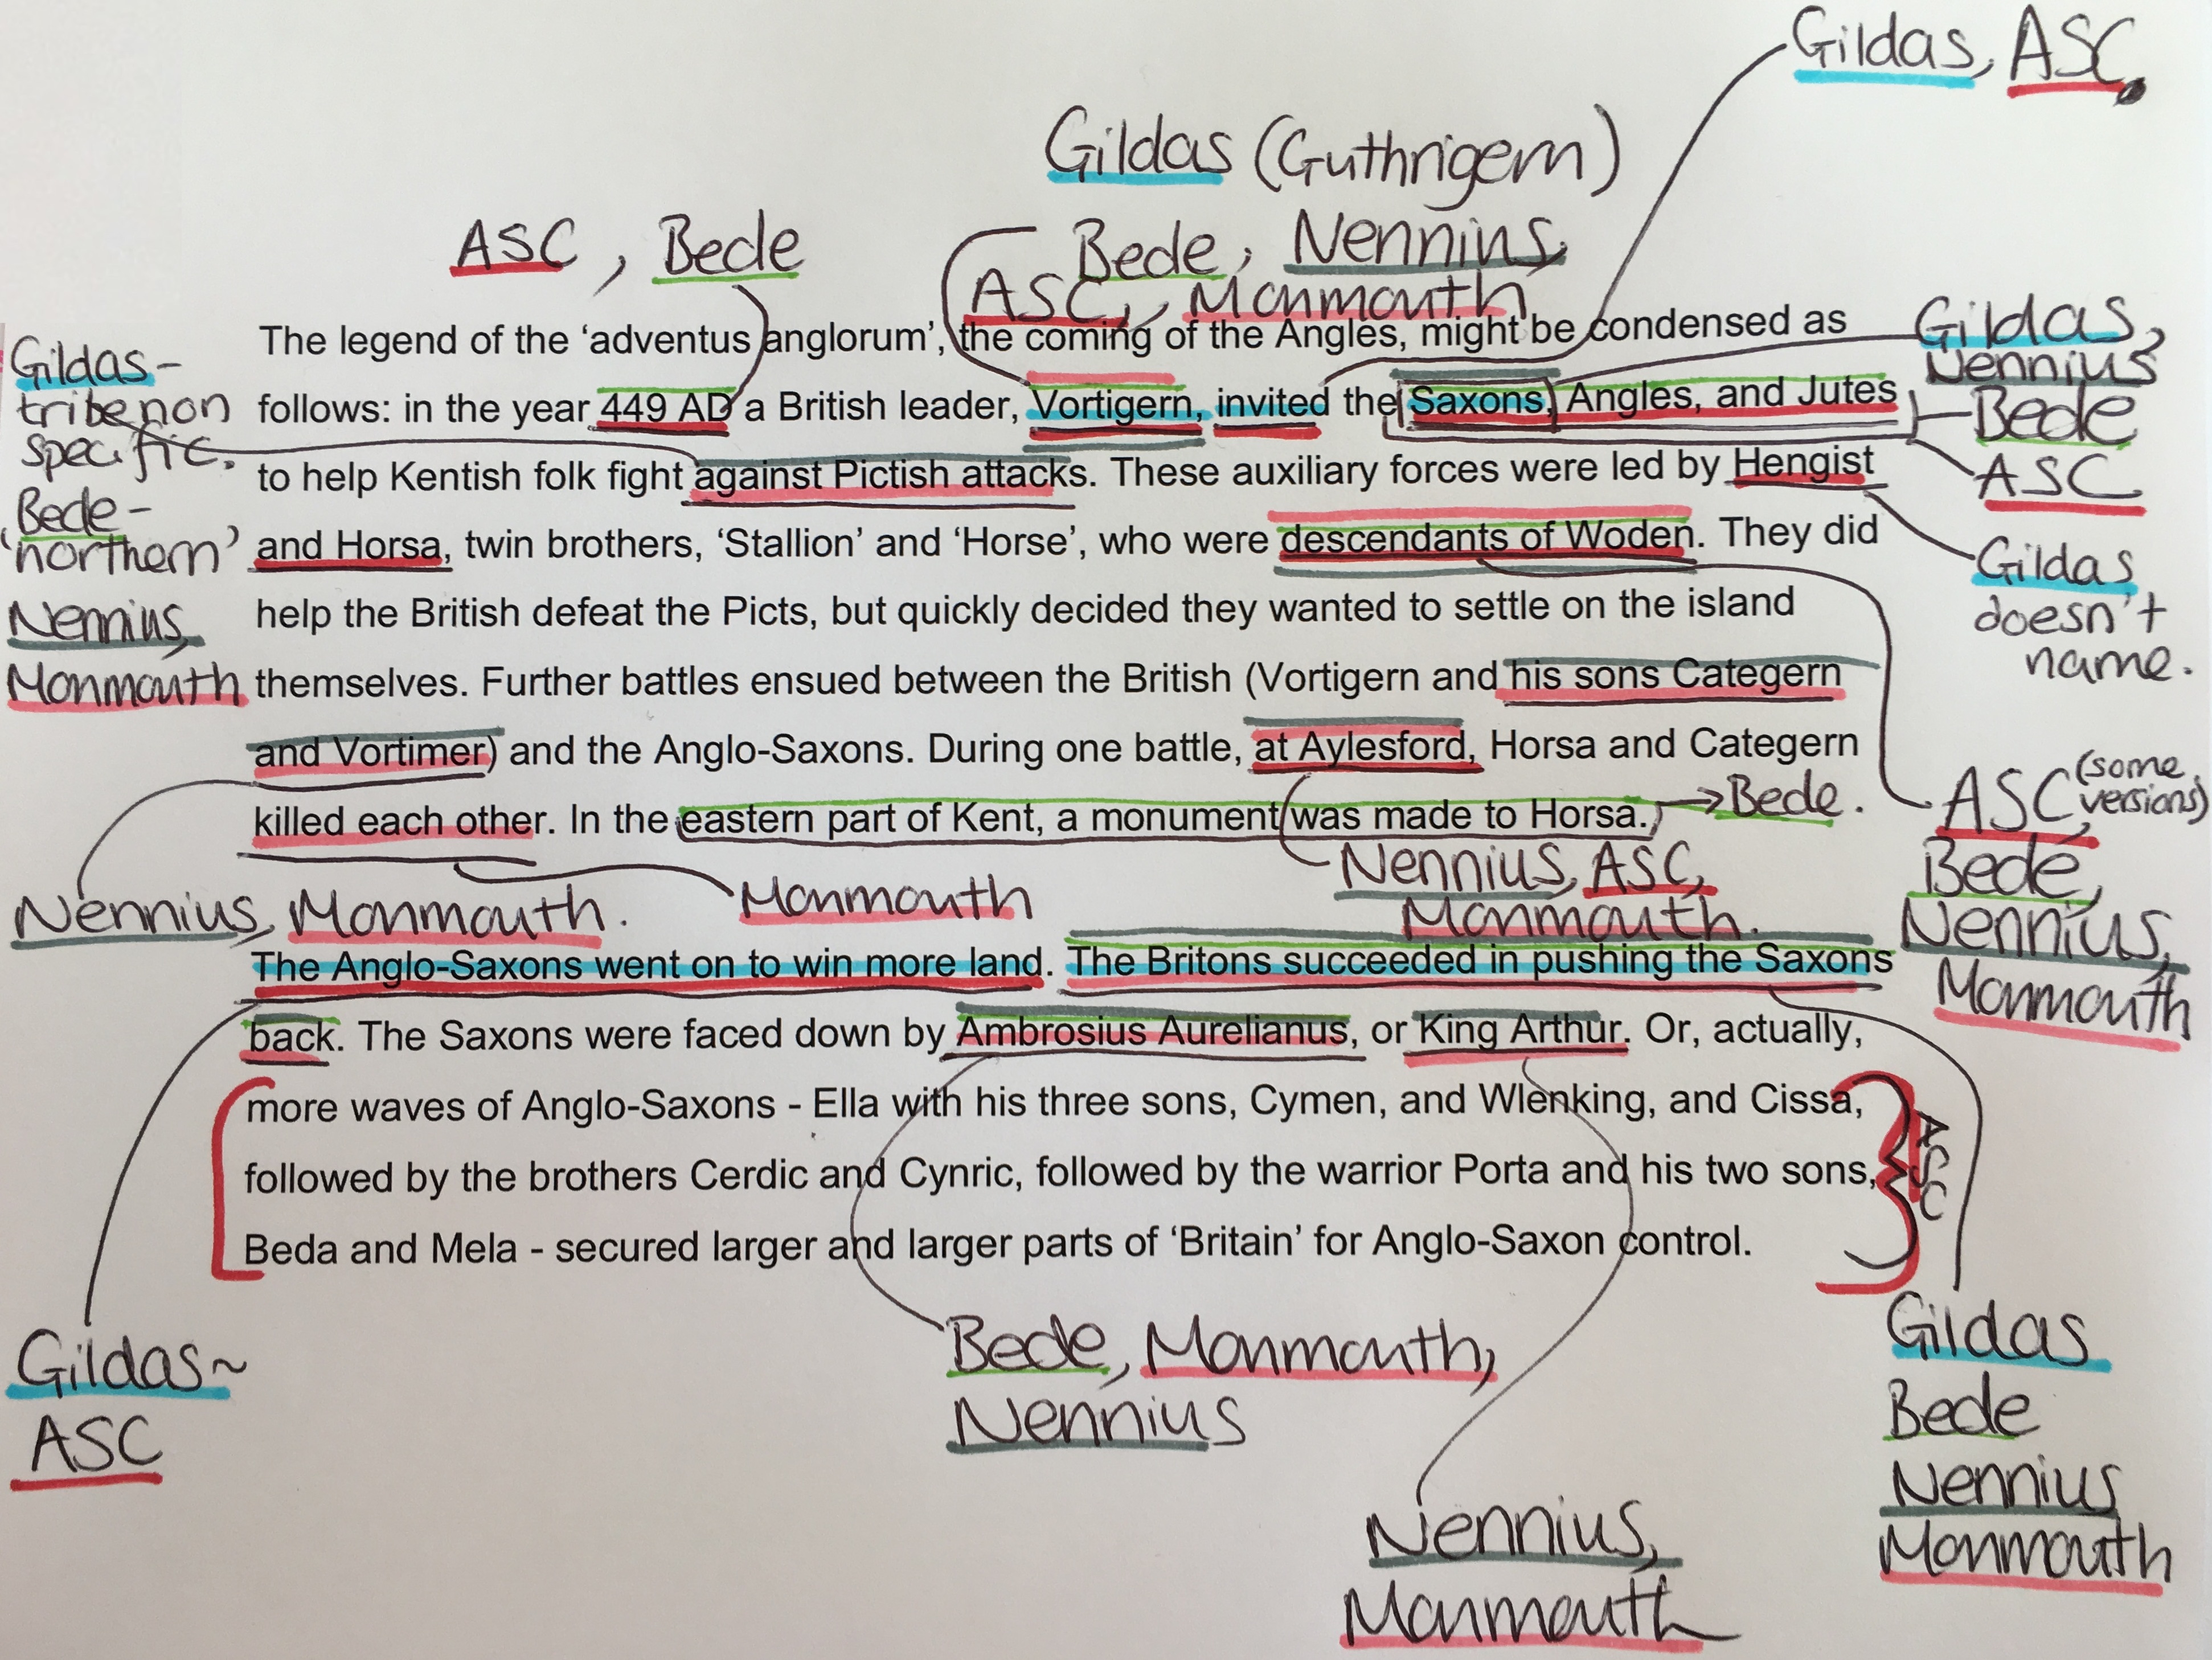 Gildas, ASC.
Gildas (Guthrigern)
ASC, Bede
Bede, Nennius,
ASC, Monmouth
The legend of the ‘adventus anglorum’, the coming of the Angles, might be condensed as
Gildas,
Nennius
Gildas -
tribe non
specific.
follows: in the year 449 AD a British leader, Vortigern, invited the Saxons, Angles, and Jutes
Bede
ASC
to help Kentish folk fight against Pictish attacks. These auxiliary forces were led by Hengist
Bede -
‘northern’
and Horsa, twin brothers, ‘Stallion’ and ‘Horse’, who were descendants of Woden. They did
Gildas
doesn't
name.
Nennius,
Monmouth
help the British defeat the Picts, but quickly decided they wanted to settle on the island
themselves. Further battles ensued between the British (Vortigern and his sons Categern
and Vortimer) and the Anglo-Saxons. During one battle, at Aylesford, Horsa and Categern
killed each other. In the eastern part of Kent, a monument was made to Horsa.
Bede.
ASC (some versions),
Bede,
Nennius,
Monmouth
Nennius, Monmouth.
Monmouth
Nennius, ASC,
Monmouth.
The Anglo-Saxons went on to win more land. The Britons succeeded in pushing the Saxons
back. The Saxons were faced down by Ambrosius Aurelianus, or King Arthur. Or, actually,
more waves of Anglo-Saxons - Ella with his three sons, Cymen, and Wlenking, and Cissa,
followed by the brothers Cerdic and Cynric, followed by the warrior Porta and his two sons,
Beda and Mela - secured larger and larger parts of ‘Britain’ for Anglo-Saxon control.
ASC
Gildas~
ASC
Bede, Monmouth,
Nennius
Nennius,
Monmouth
Gildas
Bede
Nennius
Monmouth